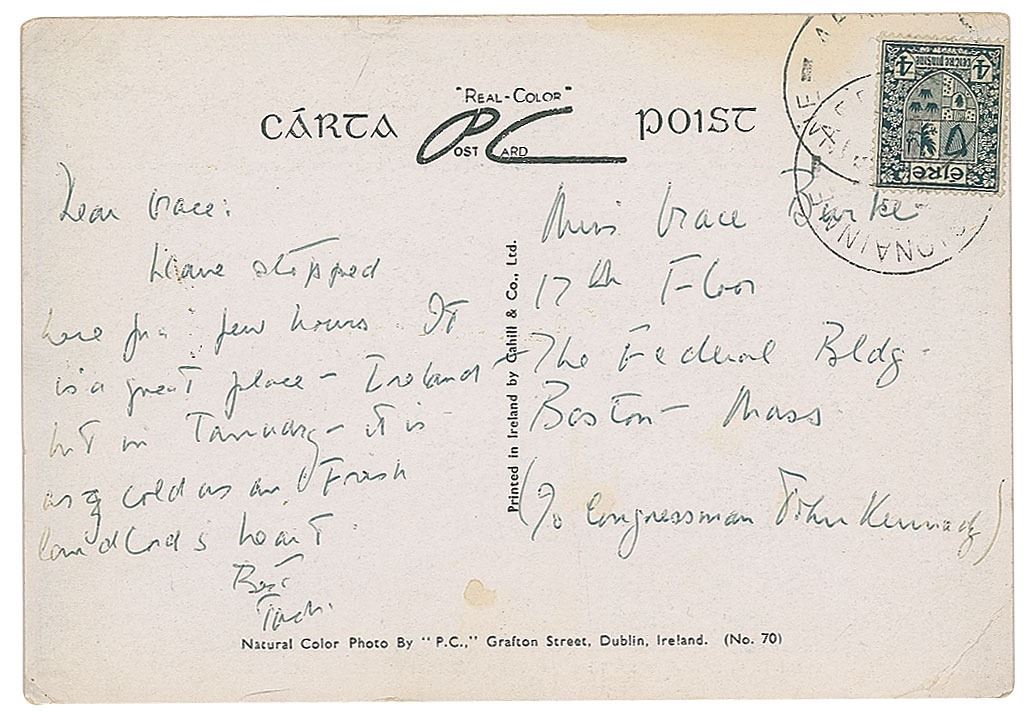 "REAL-COLOR"
CÁRTA POST CARD POIST
Dear Grace:
Have stopped
here for a few hours It
is a great place - Ireland -
but in January - it is
as cold as an Irish
landlord's heart
Best
Jack.
Miss Grace Burke
17th Floor
The Federal Bldg -
Boston - Mass
(c/o Congressman John Kennedy)
Printed in Ireland by Cahill & Co., Ltd.
Natural Color Photo By "P.C.," Grafton Street, Dublin, Ireland. (No. 70)
4 4
ceitre pinsine
éire